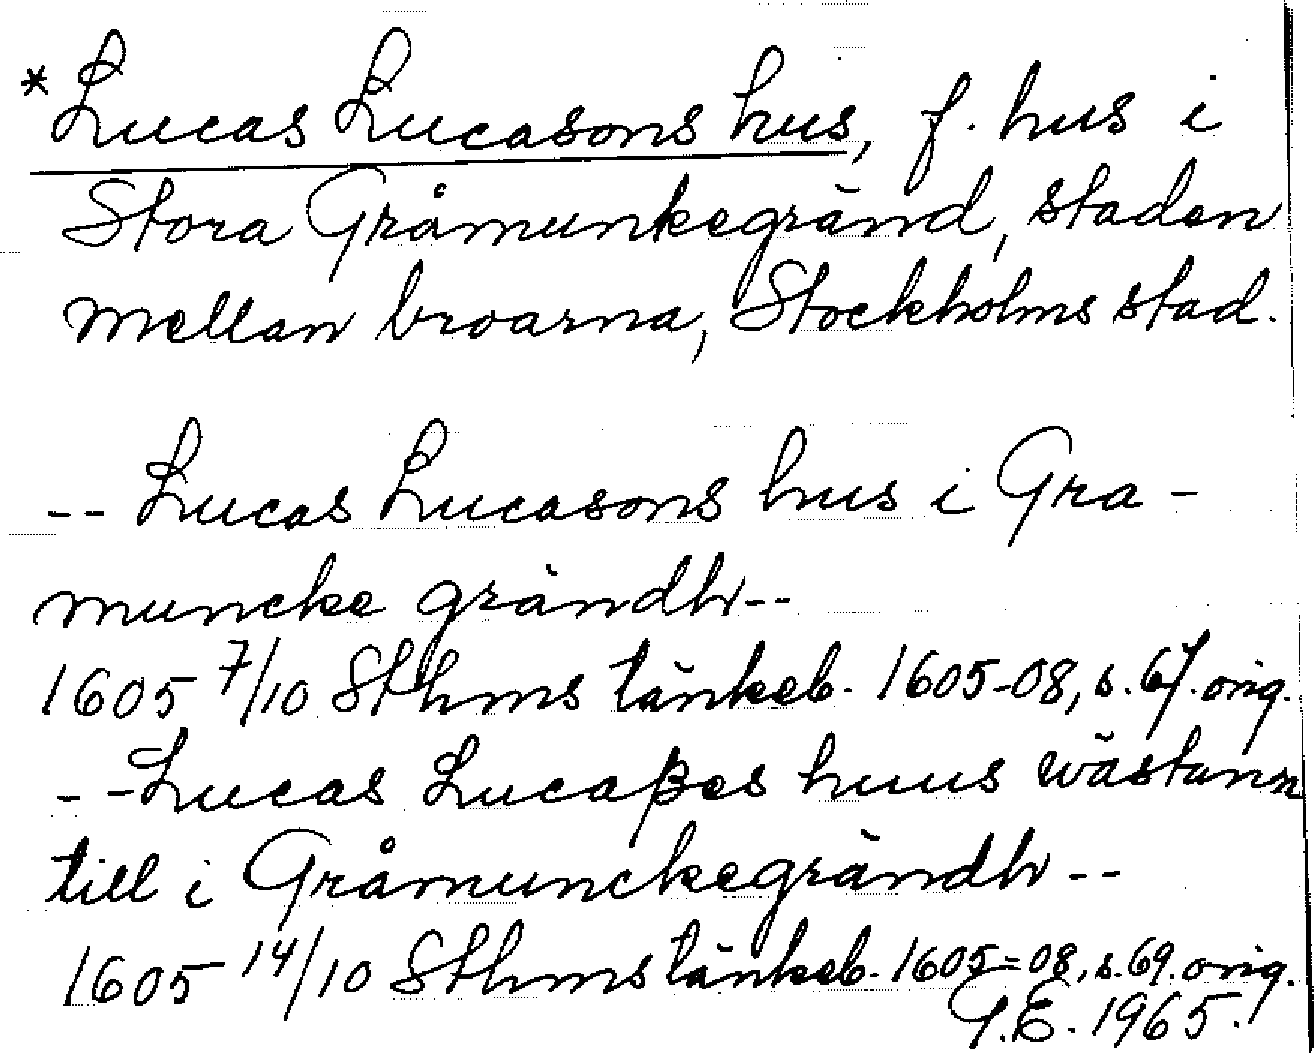 * Lucas Lucasons hus, f. hus i
Stora Gråmunkegränd, staden
mellan broarna, Stockholms stad.
-- Lucas Lucasons hus i Gra-
muncke grändh--
1605 7/10 Sthms tänkeb. 1605-08, s. 67. orig.
-- Lucas Lucaßes huus wästann
till i Gråmunckegrändh--
1605 14/10 Sthms tänkeb. 1605=08, s. 69. orig.
G.E. 1965.